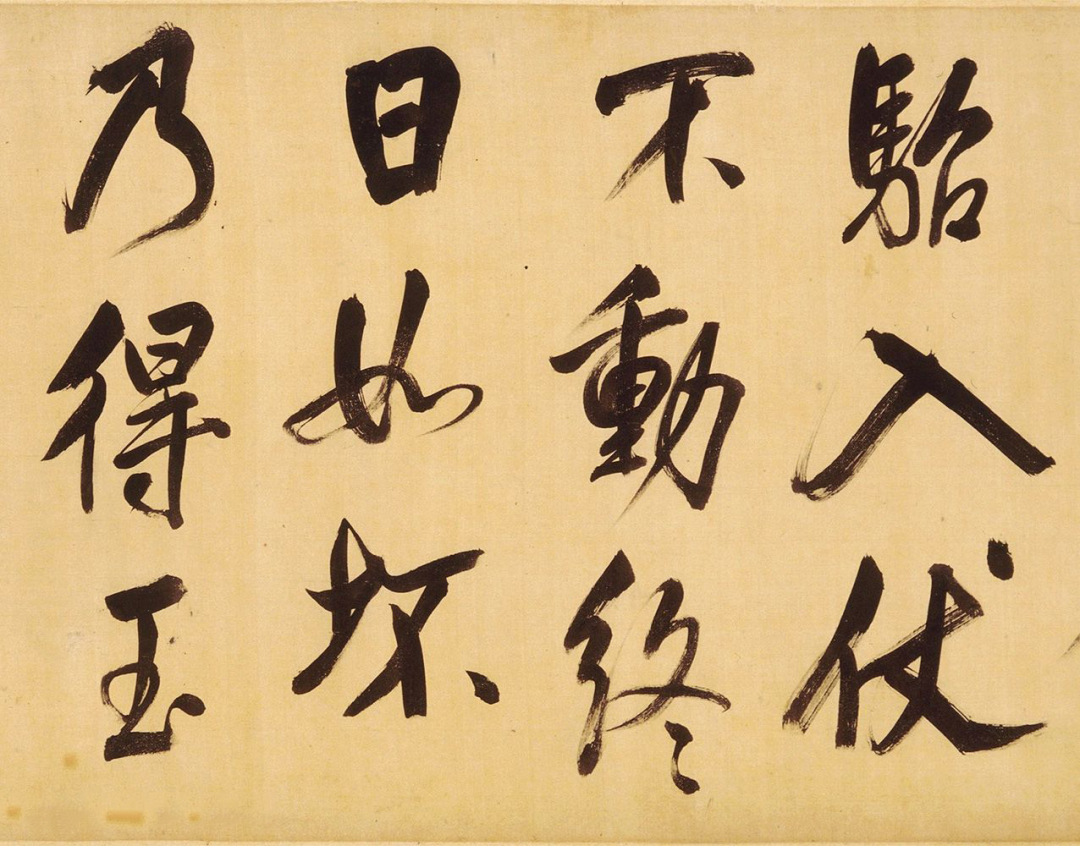 駘入仗
不動終
日如坏
乃得玉